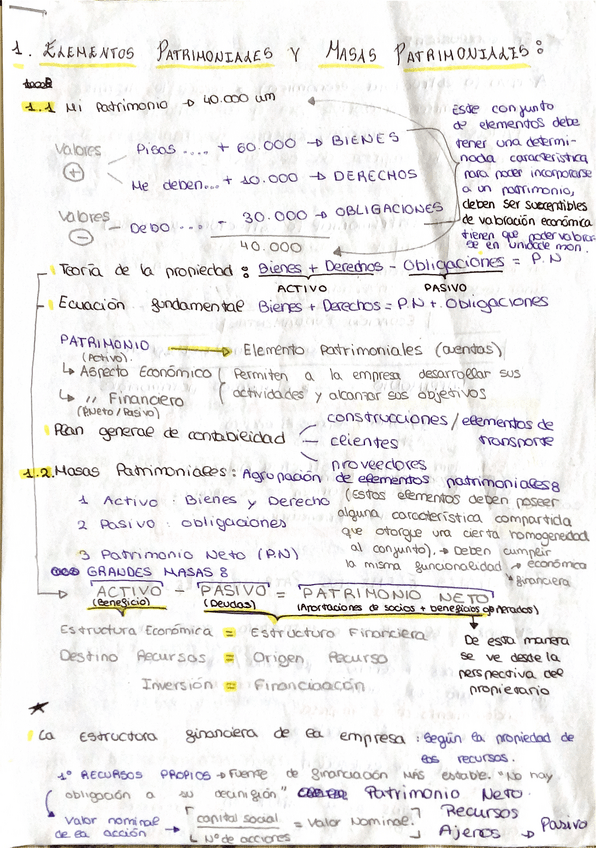 1. ELEMENTOS PATRIMONIALES Y MASAS PATRIMONIALES:
1.1 Mi Patrimonio → 40.000 um
Valores +
Pisos .... + 60.000 → BIENES
Me deben... + 10.000 → DERECHOS
Valores −
Debo ... - 30.000 → OBLIGACIONES
40.000
Este conjunto
de elementos debe
tener una determi-
nada característica
para poder incorporarse
a un patrimonio,
deben ser susceptibles
de valoración económica
tienen que poder valorar-
se en unidade mon.
Teoría de la propiedad: Bienes + Derechos - Obligaciones = P.N
ACTIVO PASIVO
Ecuación fundamental Bienes + Derechos = P.N + Obligaciones
PATRIMONIO → Elemento Patrimoniales (cuentas)
(Activo).
↳ Aspecto Económico ( Permiten a la empresa desarrollar sus
actividades y alcanzar sus objetivos
↳ " Financiero
(P.Neto/Pasivo)
Plan general de contabilidad
construcciones / elementos de
transporte
clientes
proveedores
1.2. Masas Patrimoniales: Agrupación de elementos patrimoniales
1 Activo: Bienes y Derecho
2 Pasivo: obligaciones
3 Patrimonio Neto (P.N)
(Estos elementos deben poseer
alguna característica compartida
que otorgue una cierta homogeneidad
al conjunto). → Deben cumplir
la misma funcionalidad → económica
financiera
GRANDES MASAS
ACTIVO - PASIVO = PATRIMONIO NETO
(Beneficio) (Deudas) (Aportaciones de socios + beneficios generados)
Estructura Económica = Estructura Financiera
Destino Recursos = Origen Recurso
Inversión = Financiación
De esta manera
se ve desde la
perspectiva del
propietario
★
La estructura financiera de la empresa: según la propiedad de
los recursos.
1º RECURSOS PROPIOS → Fuente de financiación MÁS estable. "No hay
obligación a su" Patrimonio Neto.
Valor nominal
de la acción → capital social / Nº de acciones = Valor Nominal.
Recursos
Ajenos → Pasivo